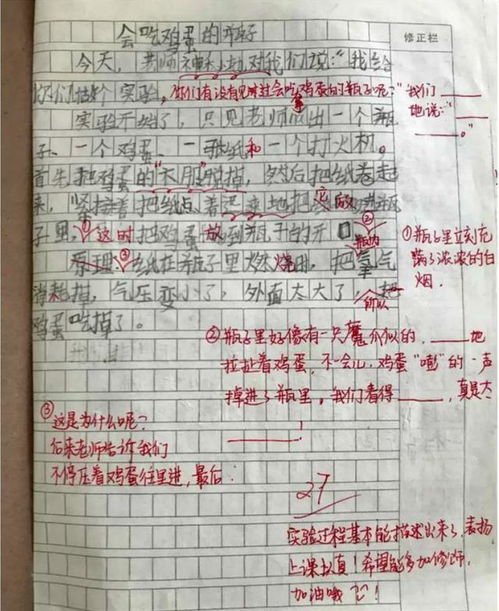 会吃鸡蛋的瓶子
修正栏
今天，老师神秘地对我们说：“我给
你们做个实验，你们有没有见过会吃鸡蛋的瓶子呢？”
我们____
地说：“____
____。”
实验开始了，只见老师拿出一个瓶
子、一个鸡蛋、一张纸和一个打火机。
首先把鸡蛋的“衣服”脱掉，然后把纸卷起
来，紧接着把纸点着起来地把放瓶
子里，①这时把鸡蛋放到瓶子的开口②
原理：③纸在瓶子里燃烧，把氧气
瓶内
消耗掉，气压变小了，外面太大了，
所以
鸡蛋吃掉了。
①瓶子里立刻充
满了浓浓的白
烟。
②瓶子里好像有一只魔爪似的，____地
拉扯着鸡蛋，不一会儿，鸡蛋“嘭”的一声
掉进了瓶里，我们看得____，真是太
____！
③这是为什么呢？
后来老师告诉我们
不停压着鸡蛋往里进，最后：
27
实验过程基本能描述出来了，表扬
上课认真！希望能多加修饰，
加油哦